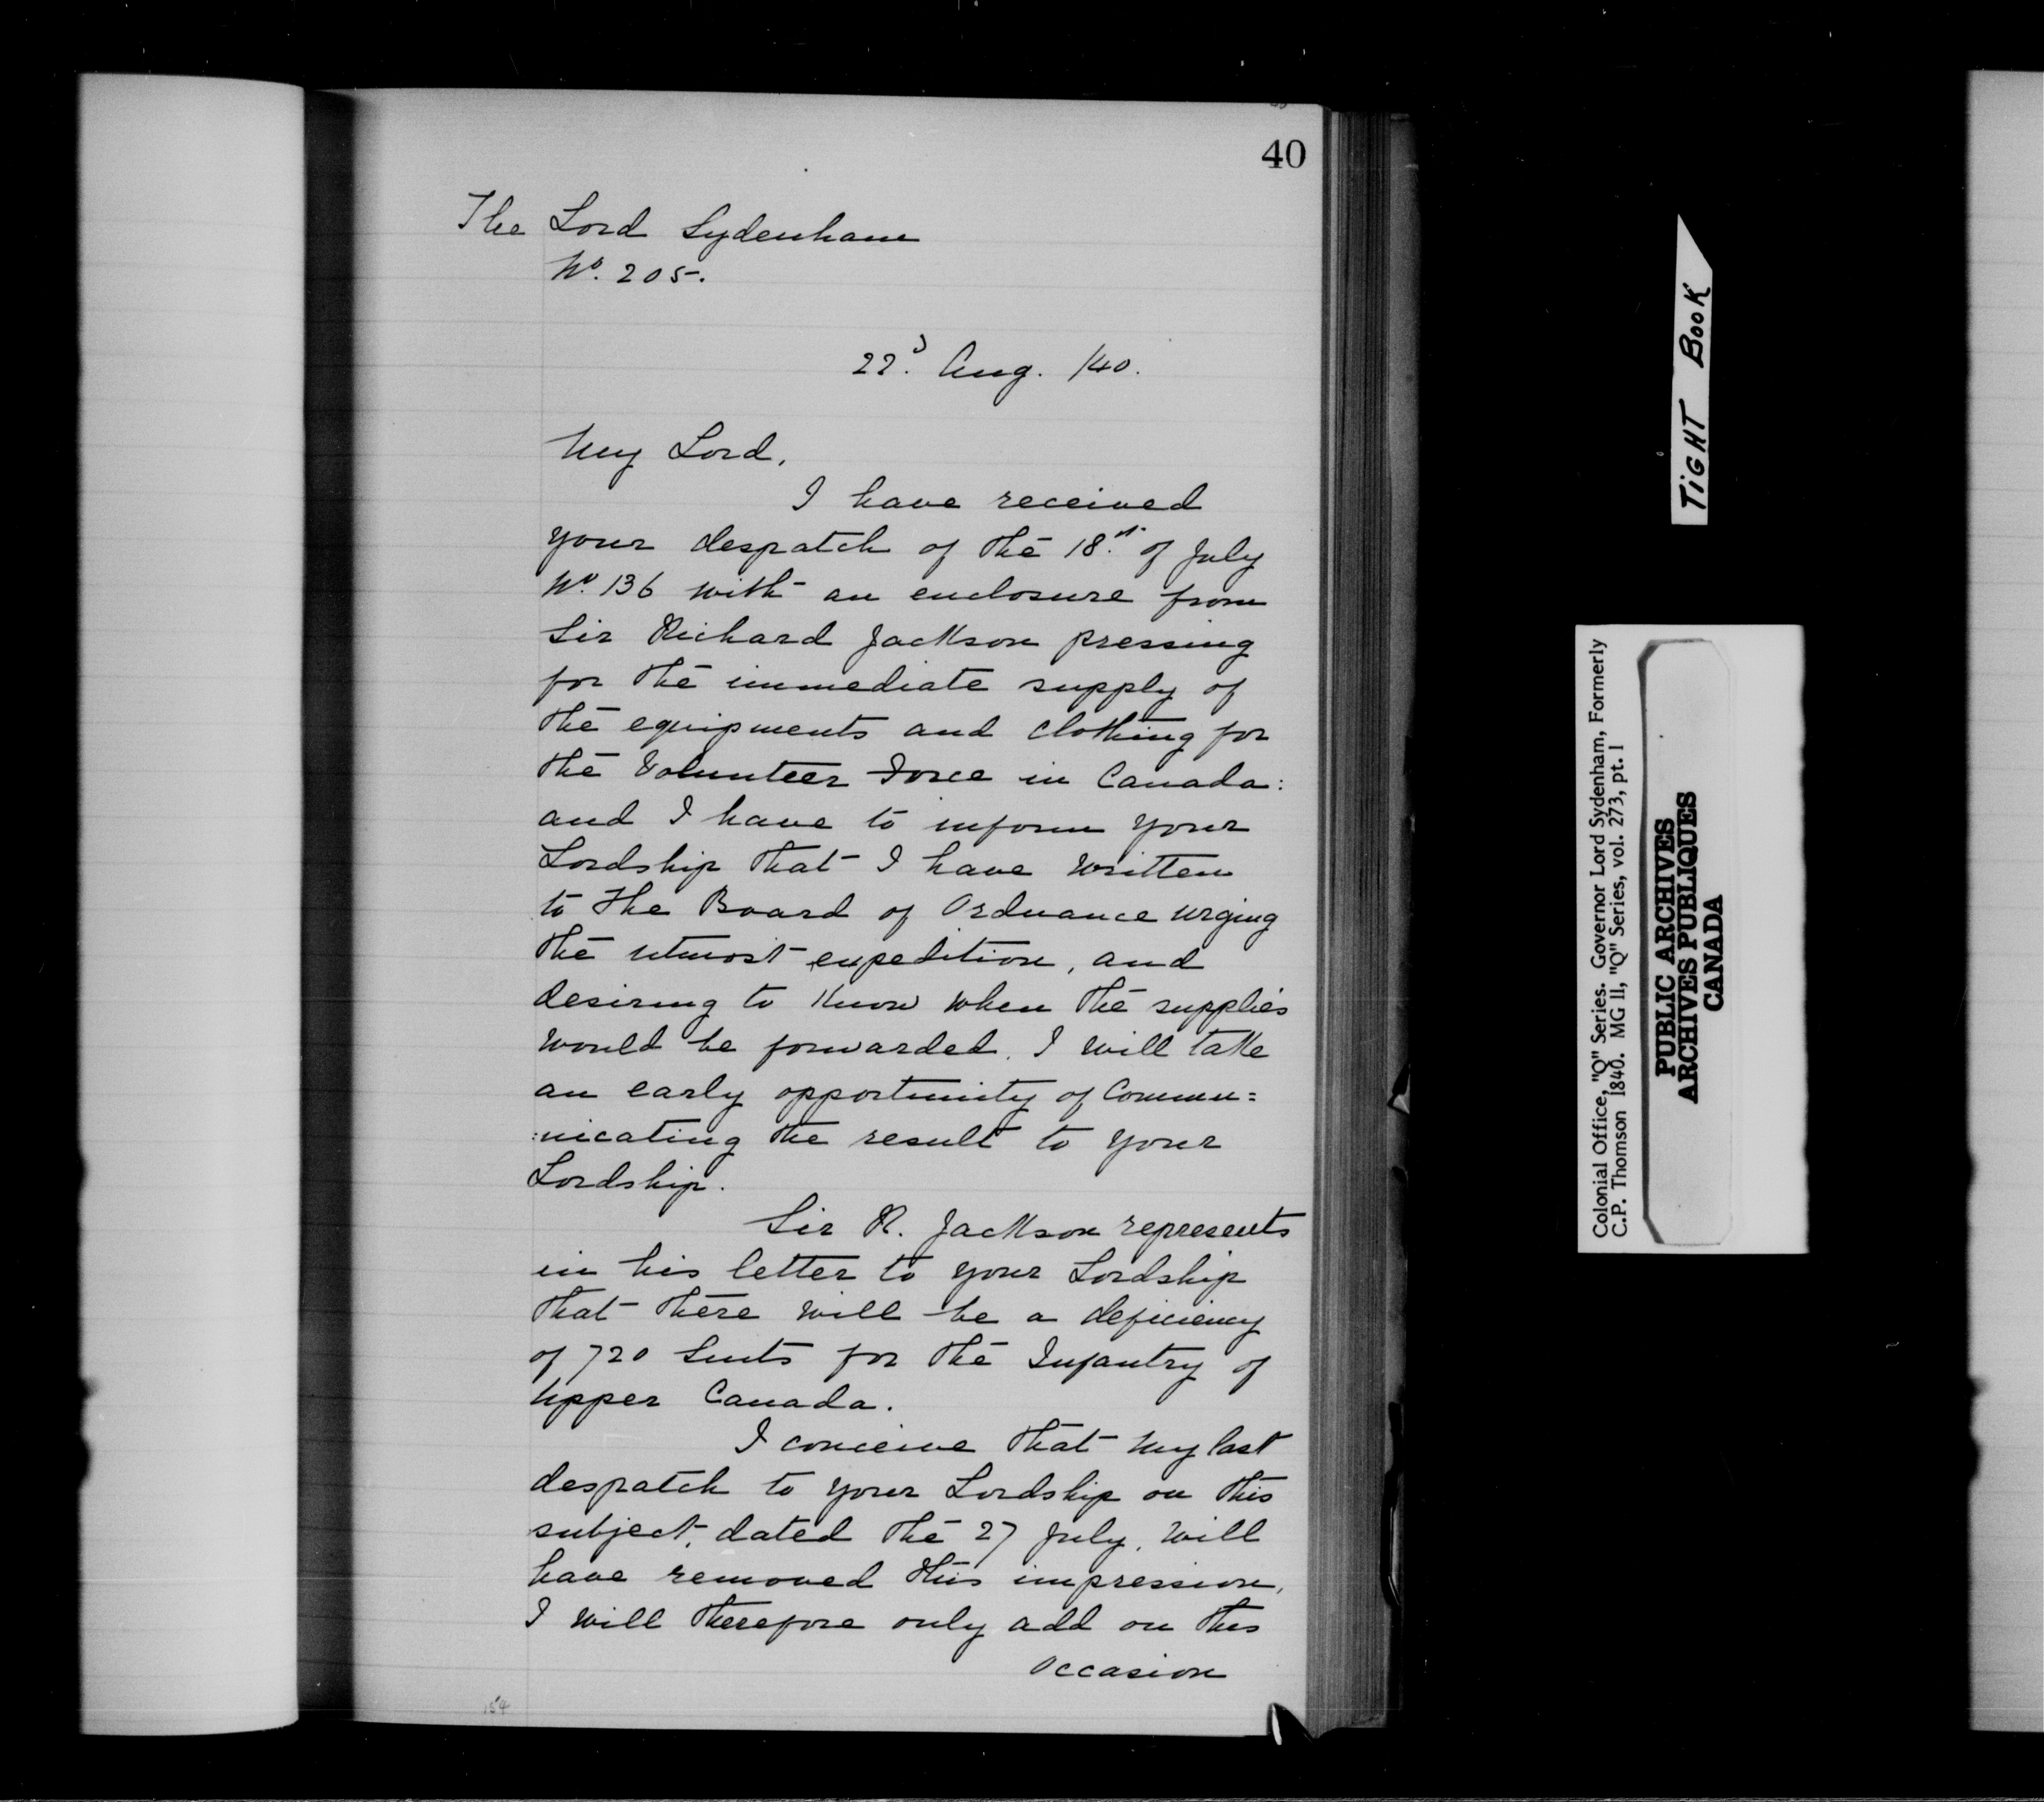 40
The Lord Sydenham
No. 205.
22d. Aug. /40.
My Lord,
I have received
your despatch of the 18.th of July
No. 136 with an enclosure from
Sir Richard Jackson pressing
for the immediate supply of
the equipments and clothing for
the Volunteer Force in Canada:
and I have to inform your
Lordship that I have written
to the Board of Ordnance urging
the utmost expedition, and
desiring to know when the supplies
would be forwarded. I will take
an early opportunity of Commu=
:nicating the result to your
Lordship.
Sir R. Jackson represents
in his letter to your Lordship
that there will be a deficiency
of 720 Suits for the Infantry of
Upper Canada.
I conceive that my last
despatch to your Lordship on this
subject, dated the 27 July, will
have removed this impression,
I will therefore only add on this
Occasion
154
TIGHT BOOK
Colonial Office, "Q" Series. Governor Lord Sydenham, Formerly
C.P. Thomson 1840. MG 11, "Q" Series, vol. 273, pt. 1
PUBLIC ARCHIVES
ARCHIVES PUBLIQUES
CANADA